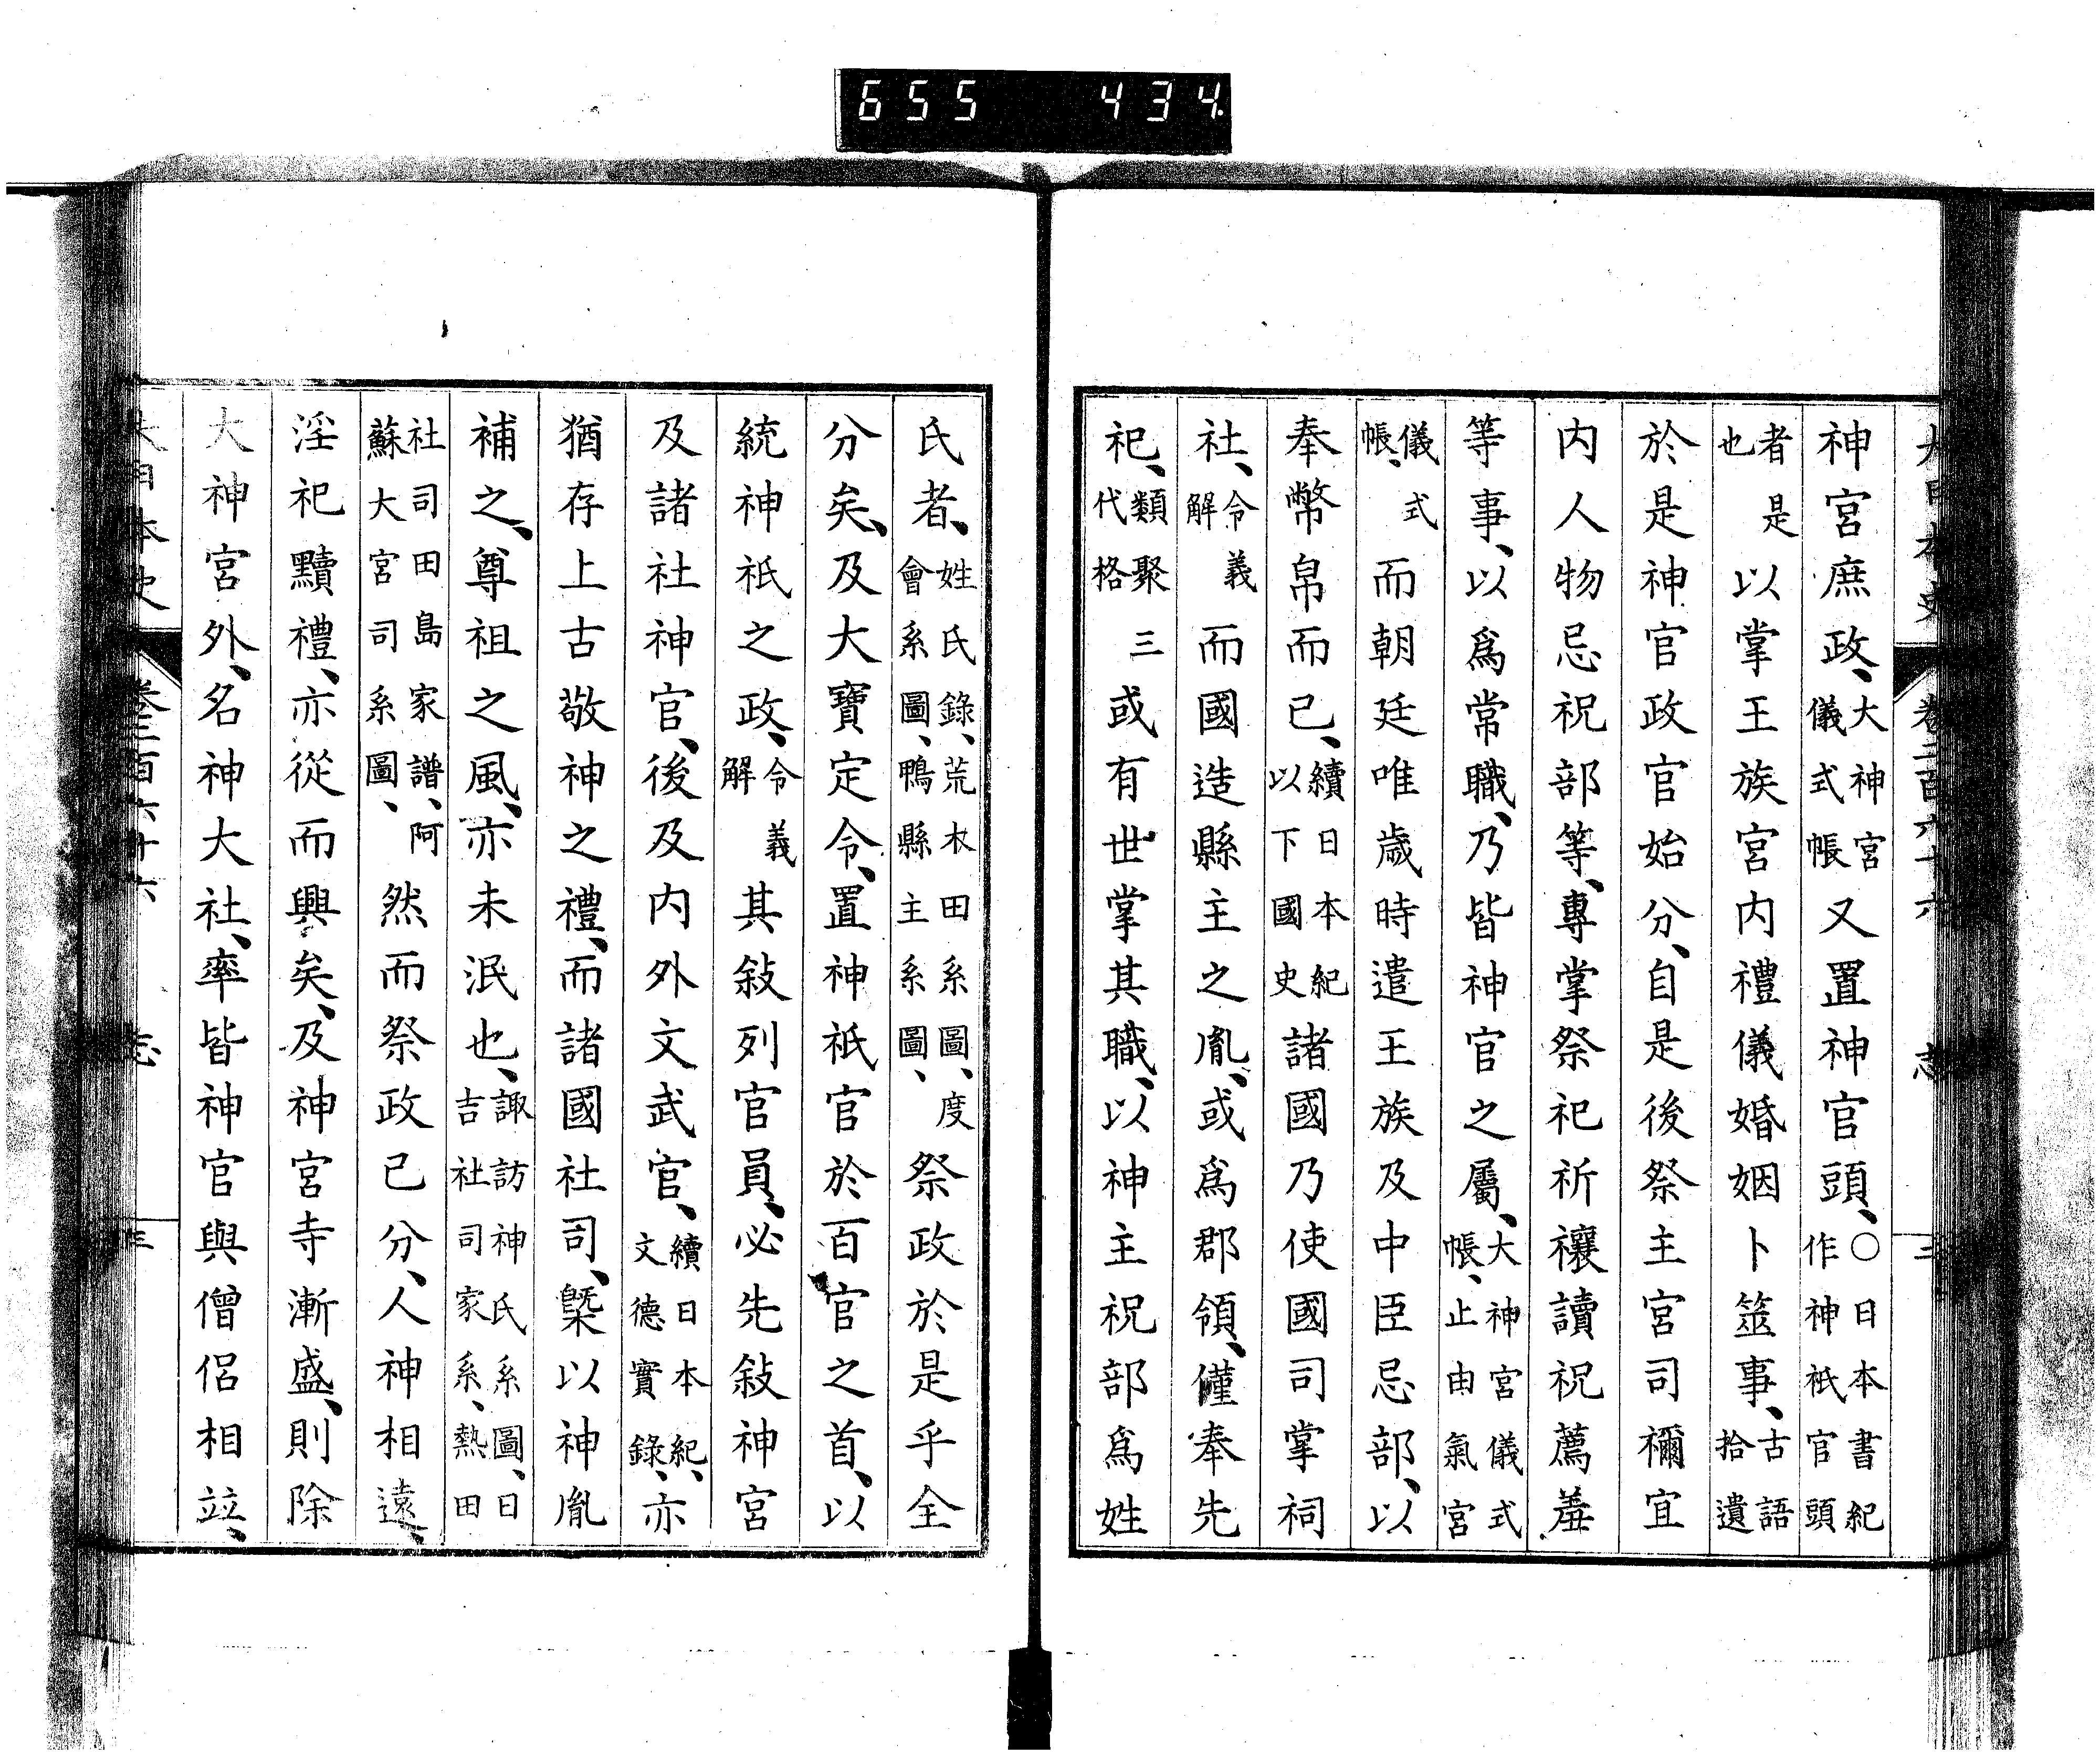 655 434
大日本史 卷二百六十六 志 三
神宮庶政、大神宮儀式帳又置神官頭、○日本書紀作神祇官頭
者是也以掌王族宮内禮儀婚姻卜筮事、古語拾遺
於是神官政官始分、自是後祭主宮司禰宜
内人物忌祝部等、專掌祭祀祈禳讀祝薦羞
等事、以爲常職、乃皆神官之屬、大神宮儀式帳、止由氣宮
儀式帳、而朝廷唯歲時遣王族及中臣忌部、以
奉幣帛而已、續日本紀以下國史諸國乃使國司掌祠
社、令義解而國造縣主之胤、或爲郡領、僅奉先
祀、類聚三代格或有世掌其職、以神主祝部爲姓
氏者、姓氏錄、荒木田系圖、度會系圖、鴨縣主系圖、祭政於是乎全
分矣、及大寶定令、置神祇官於百官之首、以
統神祇之政、令義解其敍列官員、必先敍神宮
及諸社神官、後及内外文武官、續日本紀、文德實錄、亦
猶存上古敬神之禮、而諸國社司、槩以神胤
補之、尊祖之風、亦未泯也、諏訪神氏系圖、日吉社司家系、熱田
社司田島家譜、阿蘇大宮司系圖、然而祭政已分、人神相遠、
淫祀黷禮、亦從而興矣、及神宮寺漸盛、則除
大神宮外、名神大社、率皆神官與僧侶相竝、
大日本史 卷二百六十六 志 三